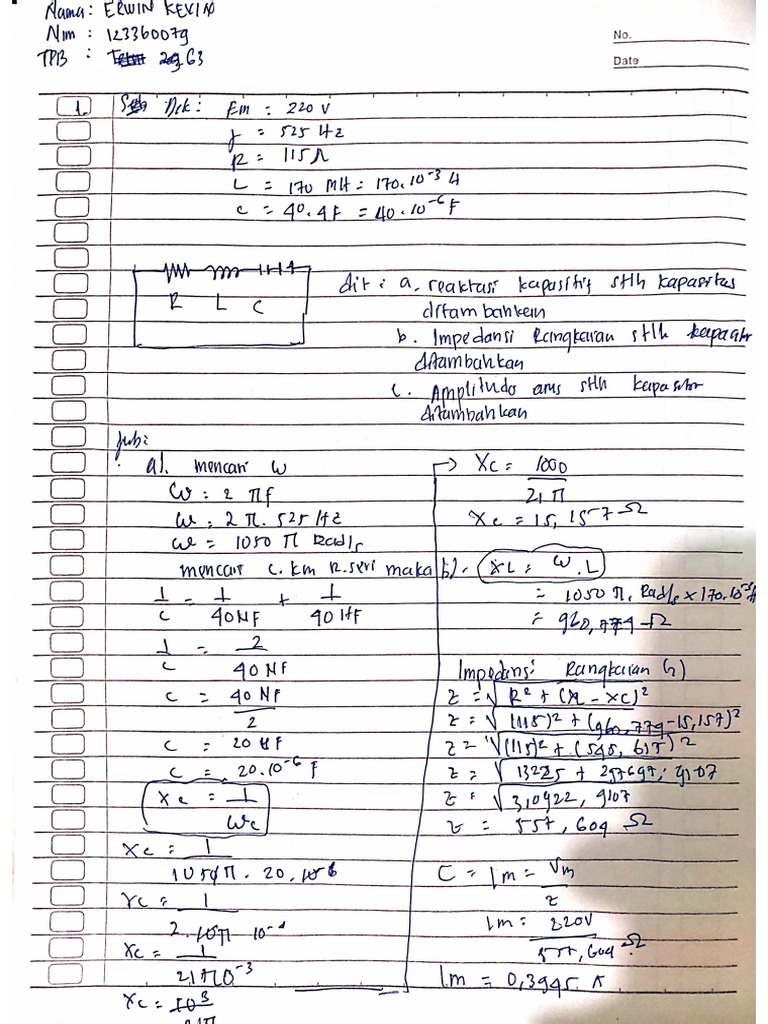 Nama: ERWIN KEVIN
Nim : 123360079
TPB : G3
No.
Date
1. Dik: Em : 220 V
f = 525 Hz
R = 115 Ω
L = 170 MH = 170.10⁻³ H
C = 40.4F = 40.10⁻⁶ F
R L C
dit : a. reaktasi kapasitif stlh kapasitas
ditambahkan
b. Impedansi Rangkaian stlh kapasitor
ditambahkan
c. Amplitudo arus stlh kapasitor
ditambahkan
Jwb:
a). mencari ω
ω = 2 πf
ω = 2 π. 525 Hz
ω = 1050 π Rad/s
mencari C. km R.seri maka
1/C = 1/40 NF + 1/40 HF
1/C = 2/40 NF
C = 40 NF/2
C = 20 HF
C = 20.10⁻⁶ F
Xc = 1/ωc
Xc = 1/1050π. 20.10⁻⁶
Xc = 1/2.10π 10⁻⁴
Xc = 1/21π10⁻³
Xc = 10³/21π
→ Xc = 1000/21 π
Xc = 15,157 Ω
b). XL = ω.L
= 1050 π. Rad/s x 170.10⁻³ H
= 960,779 Ω
Impedansi Rangkaian (z)
z = √R² + (XL - XC)²
z = √(115)² + (960,779 - 15,157)²
z = √(115)² + (545,615)²
z = √13225 + 297697,9107
z = √3,0922,9107
z = 557,609 Ω
C = Im = Vm/z
Im = 220V/557,609 Ω
Im = 0,3945 A